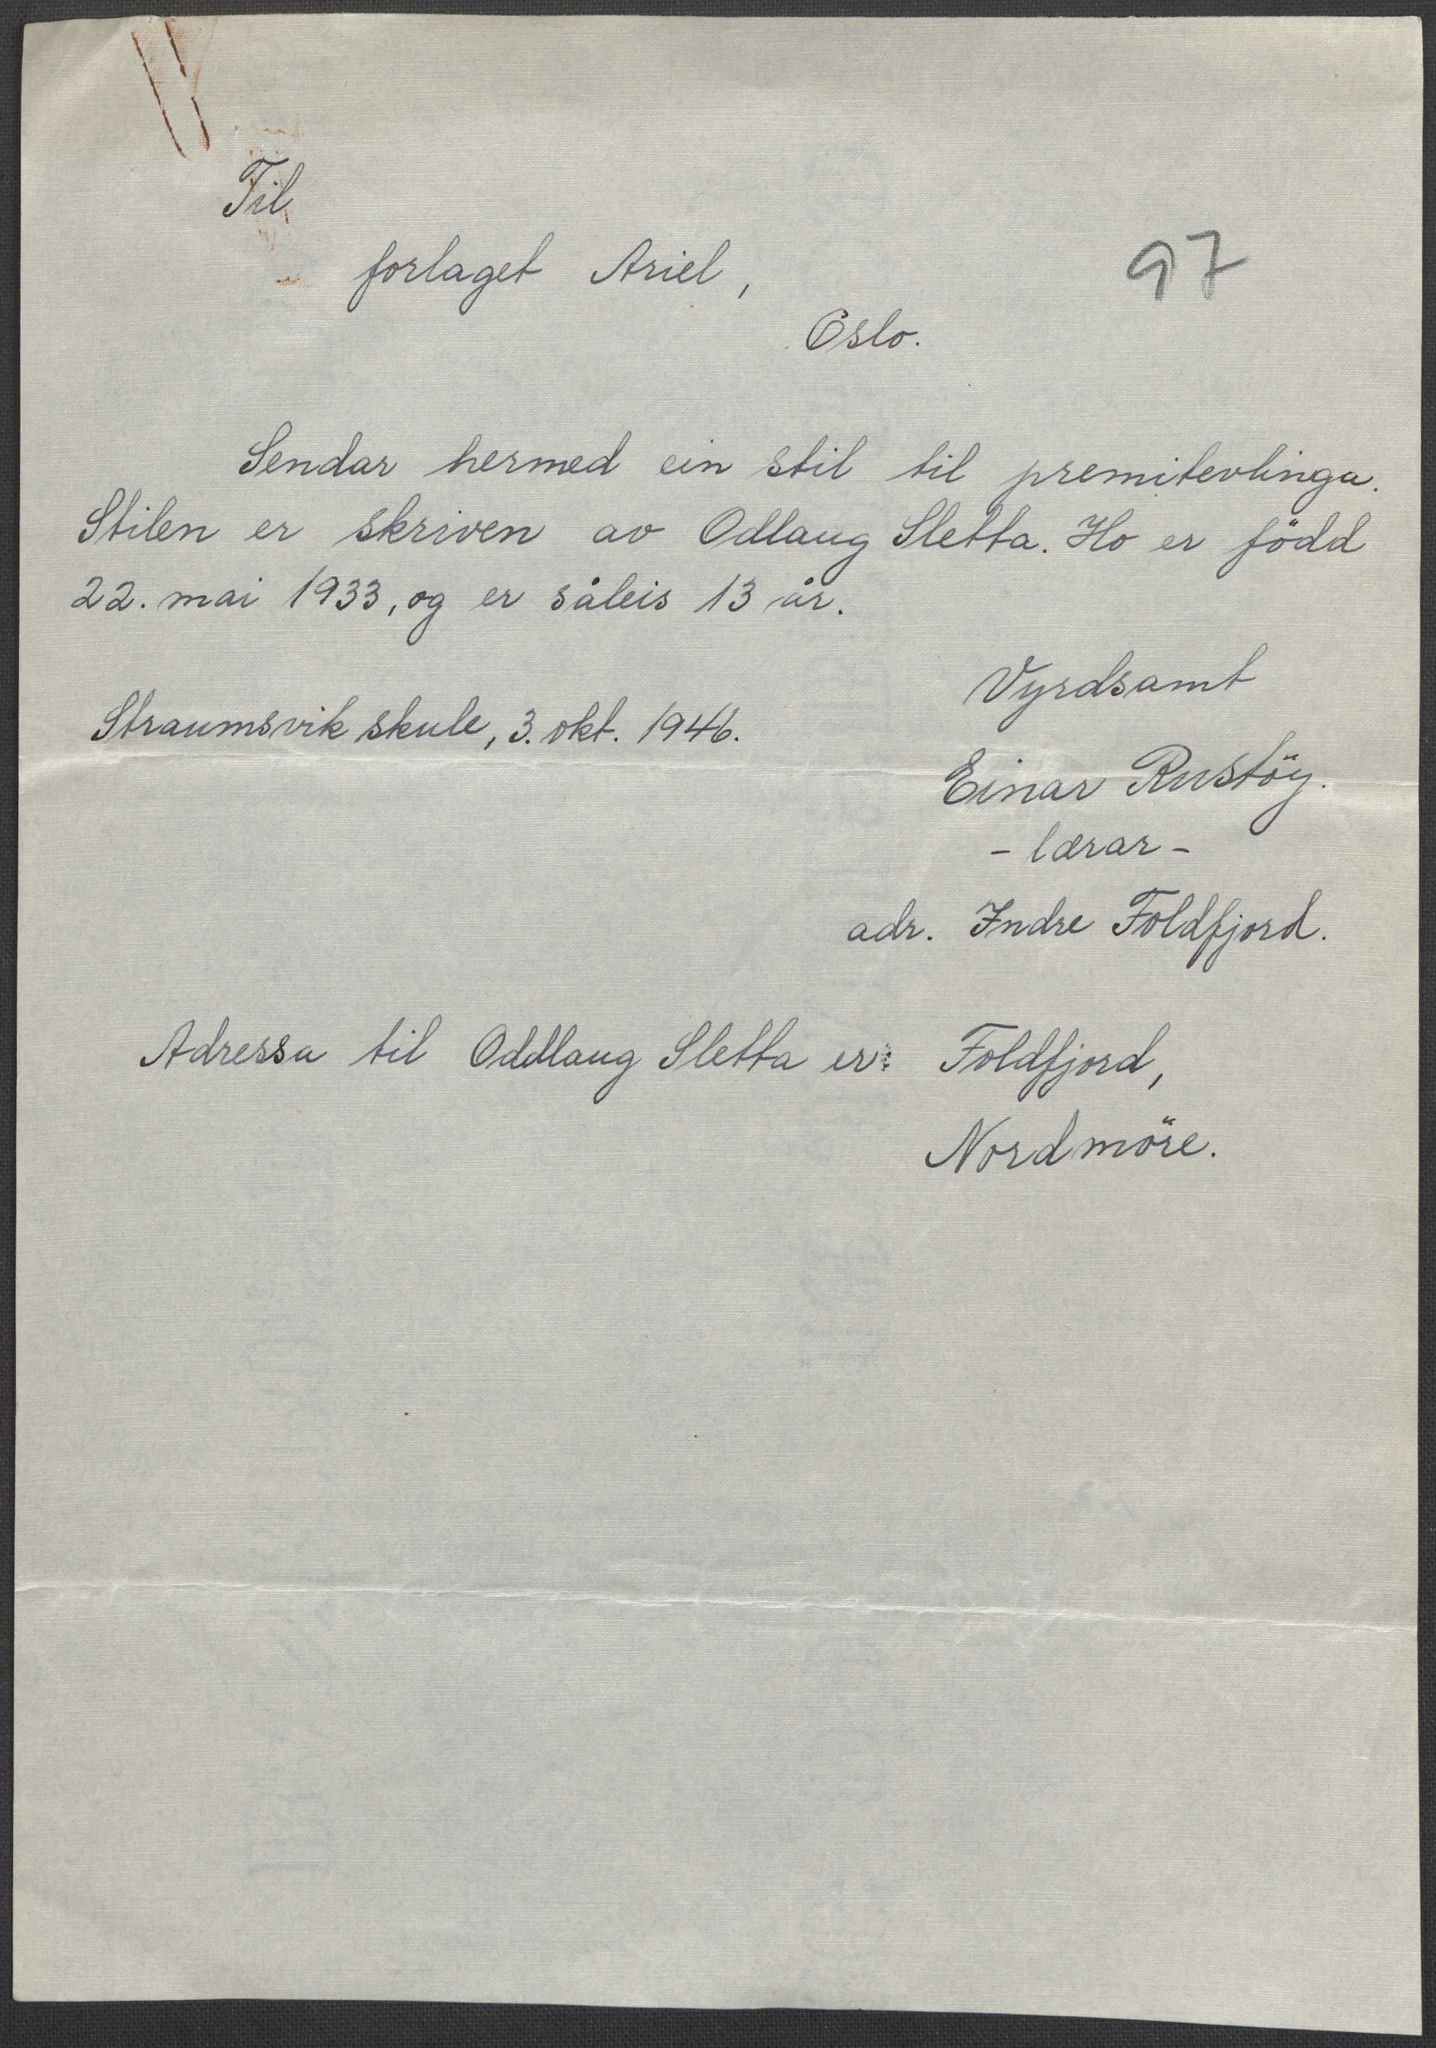 Til
forlaget Ariel,
97
Oslo.
Sendar hermed ein stil til premitevlinga.
Stilen er skriven av Odlaug Sletta. Ho er född
22. mai 1933, og er såleis 13 år.
Vyrdsamt
Straumsvik skule, 3. okt. 1946.
Einar Rustöy.
- lærar -
adr. Indre Foldfjord.
Adressa til Oddlaug Sletta er: Foldfjord,
Nordmöre.